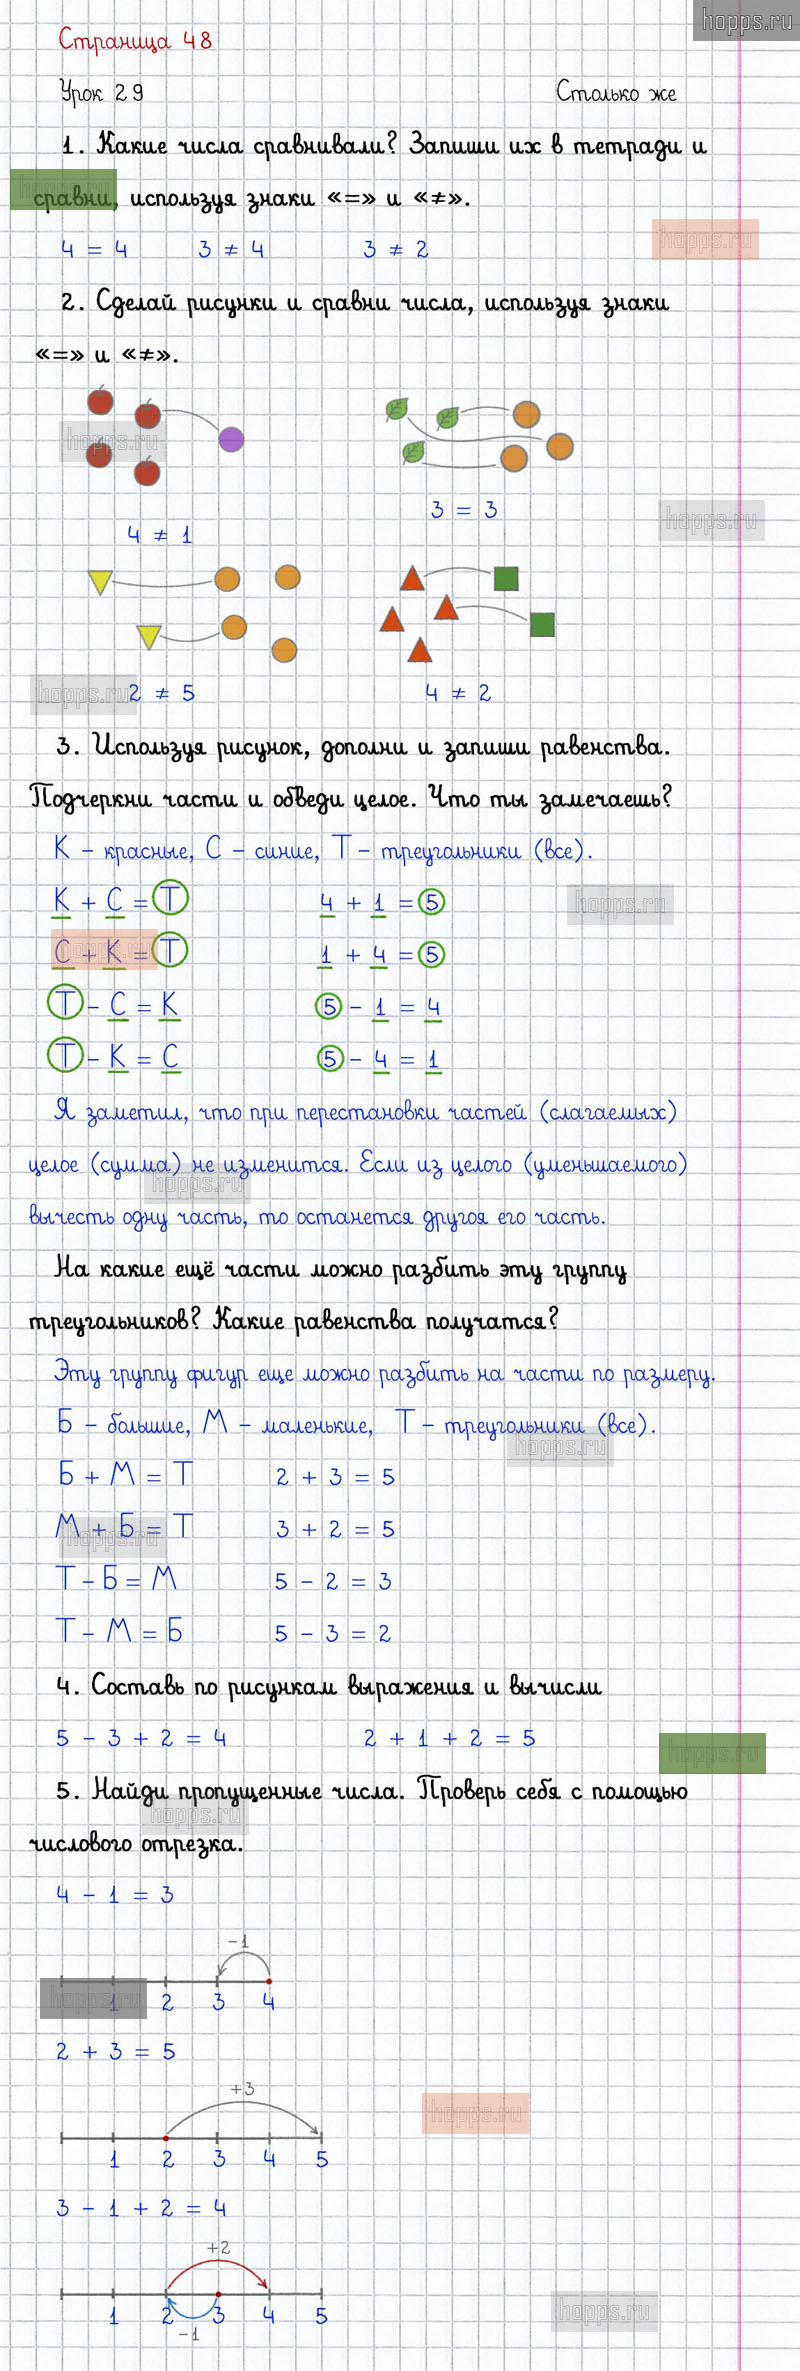 hopps.ru
Страница 48
Урок 29 Столько же
1. Какие числа сравнивали? Запиши их в тетради и
сравни, используя знаки «=» и «≠».
hopps.ru
hopps.ru
4 = 4 3 ≠ 4 3 ≠ 2
2. Сделай рисунки и сравни числа, используя знаки
«=» и «≠».
hopps.ru
3 = 3
hopps.ru
4 ≠ 1
hopps.ru
2 ≠ 5 4 ≠ 2
3. Используя рисунок, дополни и запиши равенства.
Подчеркни части и обведи целое. Что ты замечаешь?
К – красные, С – синие, Т – треугольники (все).
К + С = Т 4 + 1 = 5
hopps.ru
С + К = Т 1 + 4 = 5
hopps.ru
Т – С = К 5 – 1 = 4
Т – К = С 5 – 4 = 1
Я заметил, что при перестановки частей (слагаемых)
целое (сумма) не изменится. Если из целого (уменьшаемого)
hopps.ru
вычесть одну часть, то останется другоя его часть.
На какие ещё части можно разбить эту группу
треугольников? Какие равенства получатся?
Эту группу фигур еще можно разбить на части по размеру.
Б – большие, М – маленькие, Т – треугольники (все).
hopps.ru
Б + М = Т 2 + 3 = 5
М + Б = Т 3 + 2 = 5
hopps.ru
Т – Б = М 5 – 2 = 3
Т – М = Б 5 – 3 = 2
4. Составь по рисункам выражения и вычисли
5 – 3 + 2 = 4 2 + 1 + 2 = 5
hopps.ru
5. Найди пропущенные числа. Проверь себя с помощью
hopps.ru
числового отрезка.
4 – 1 = 3
–1
hopps.ru
1 2 3 4
2 + 3 = 5
+3
hopps.ru
1 2 3 4 5
3 – 1 + 2 = 4
+2
1 2 3 4 5
hopps.ru
–1